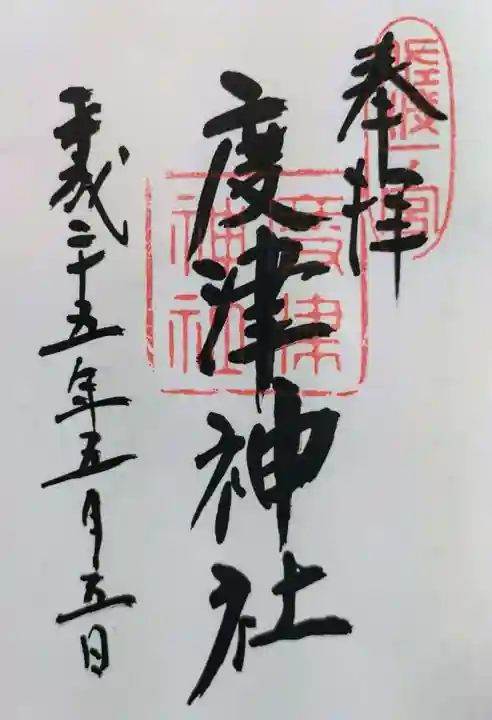 奉拝
佐渡一宮
度津神社
度津
神社
平成二十五年五月五日